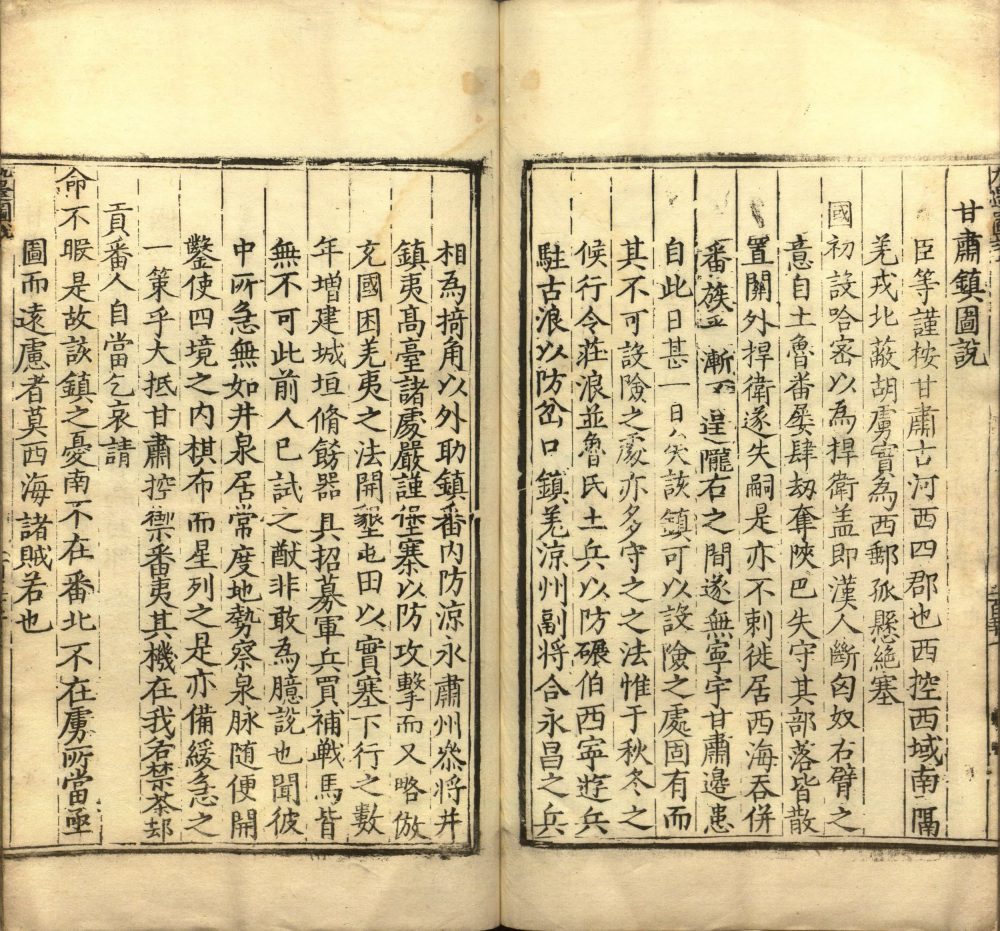 甘肅鎮圖說
臣等謹按甘肅古河西四郡也西控西域南隔
羌戎北蔽胡虜實為西郵孤懸絶塞
國初設哈密以為捍衛盖即漢人斷匈奴右臂之
意自土魯番屡肆劫奪陝巴失守其部落皆散
置關外捍衛遂失嗣是亦不剌徙居西海吞併
番族漸逞隴右之間遂無寧宇甘肅邊患
自此日甚一日矣該鎮可以設險之處固有而
其不可設險之處亦多守之之法惟于秋冬之
候行令莊浪並魯氏土兵以防碾伯西寧遊兵
駐古浪以防岔口鎮羌涼州副將合永昌之兵
相為掎角以外助鎮番内防涼永肅州叅將并
鎮夷髙臺諸處嚴謹堡寨以防攻擊而又略倣
充國困羌夷之法開墾屯田以實塞下行之數
年增建城垣脩餙器具招募軍兵買補戰馬皆
無不可此前人已試之猷非敢為臆說也聞彼
中所急無如井泉居常度地勢察泉脉随便開
鑿使四境之内棋布而星列之是亦備緩急之
一策乎大抵甘肅控禦番夷其機在我若禁茶却
貢番人自當乞哀請
命不暇是故該鎮之憂南不在番北不在虜所當亟
圖而遠慮者莫西海諸賊若也